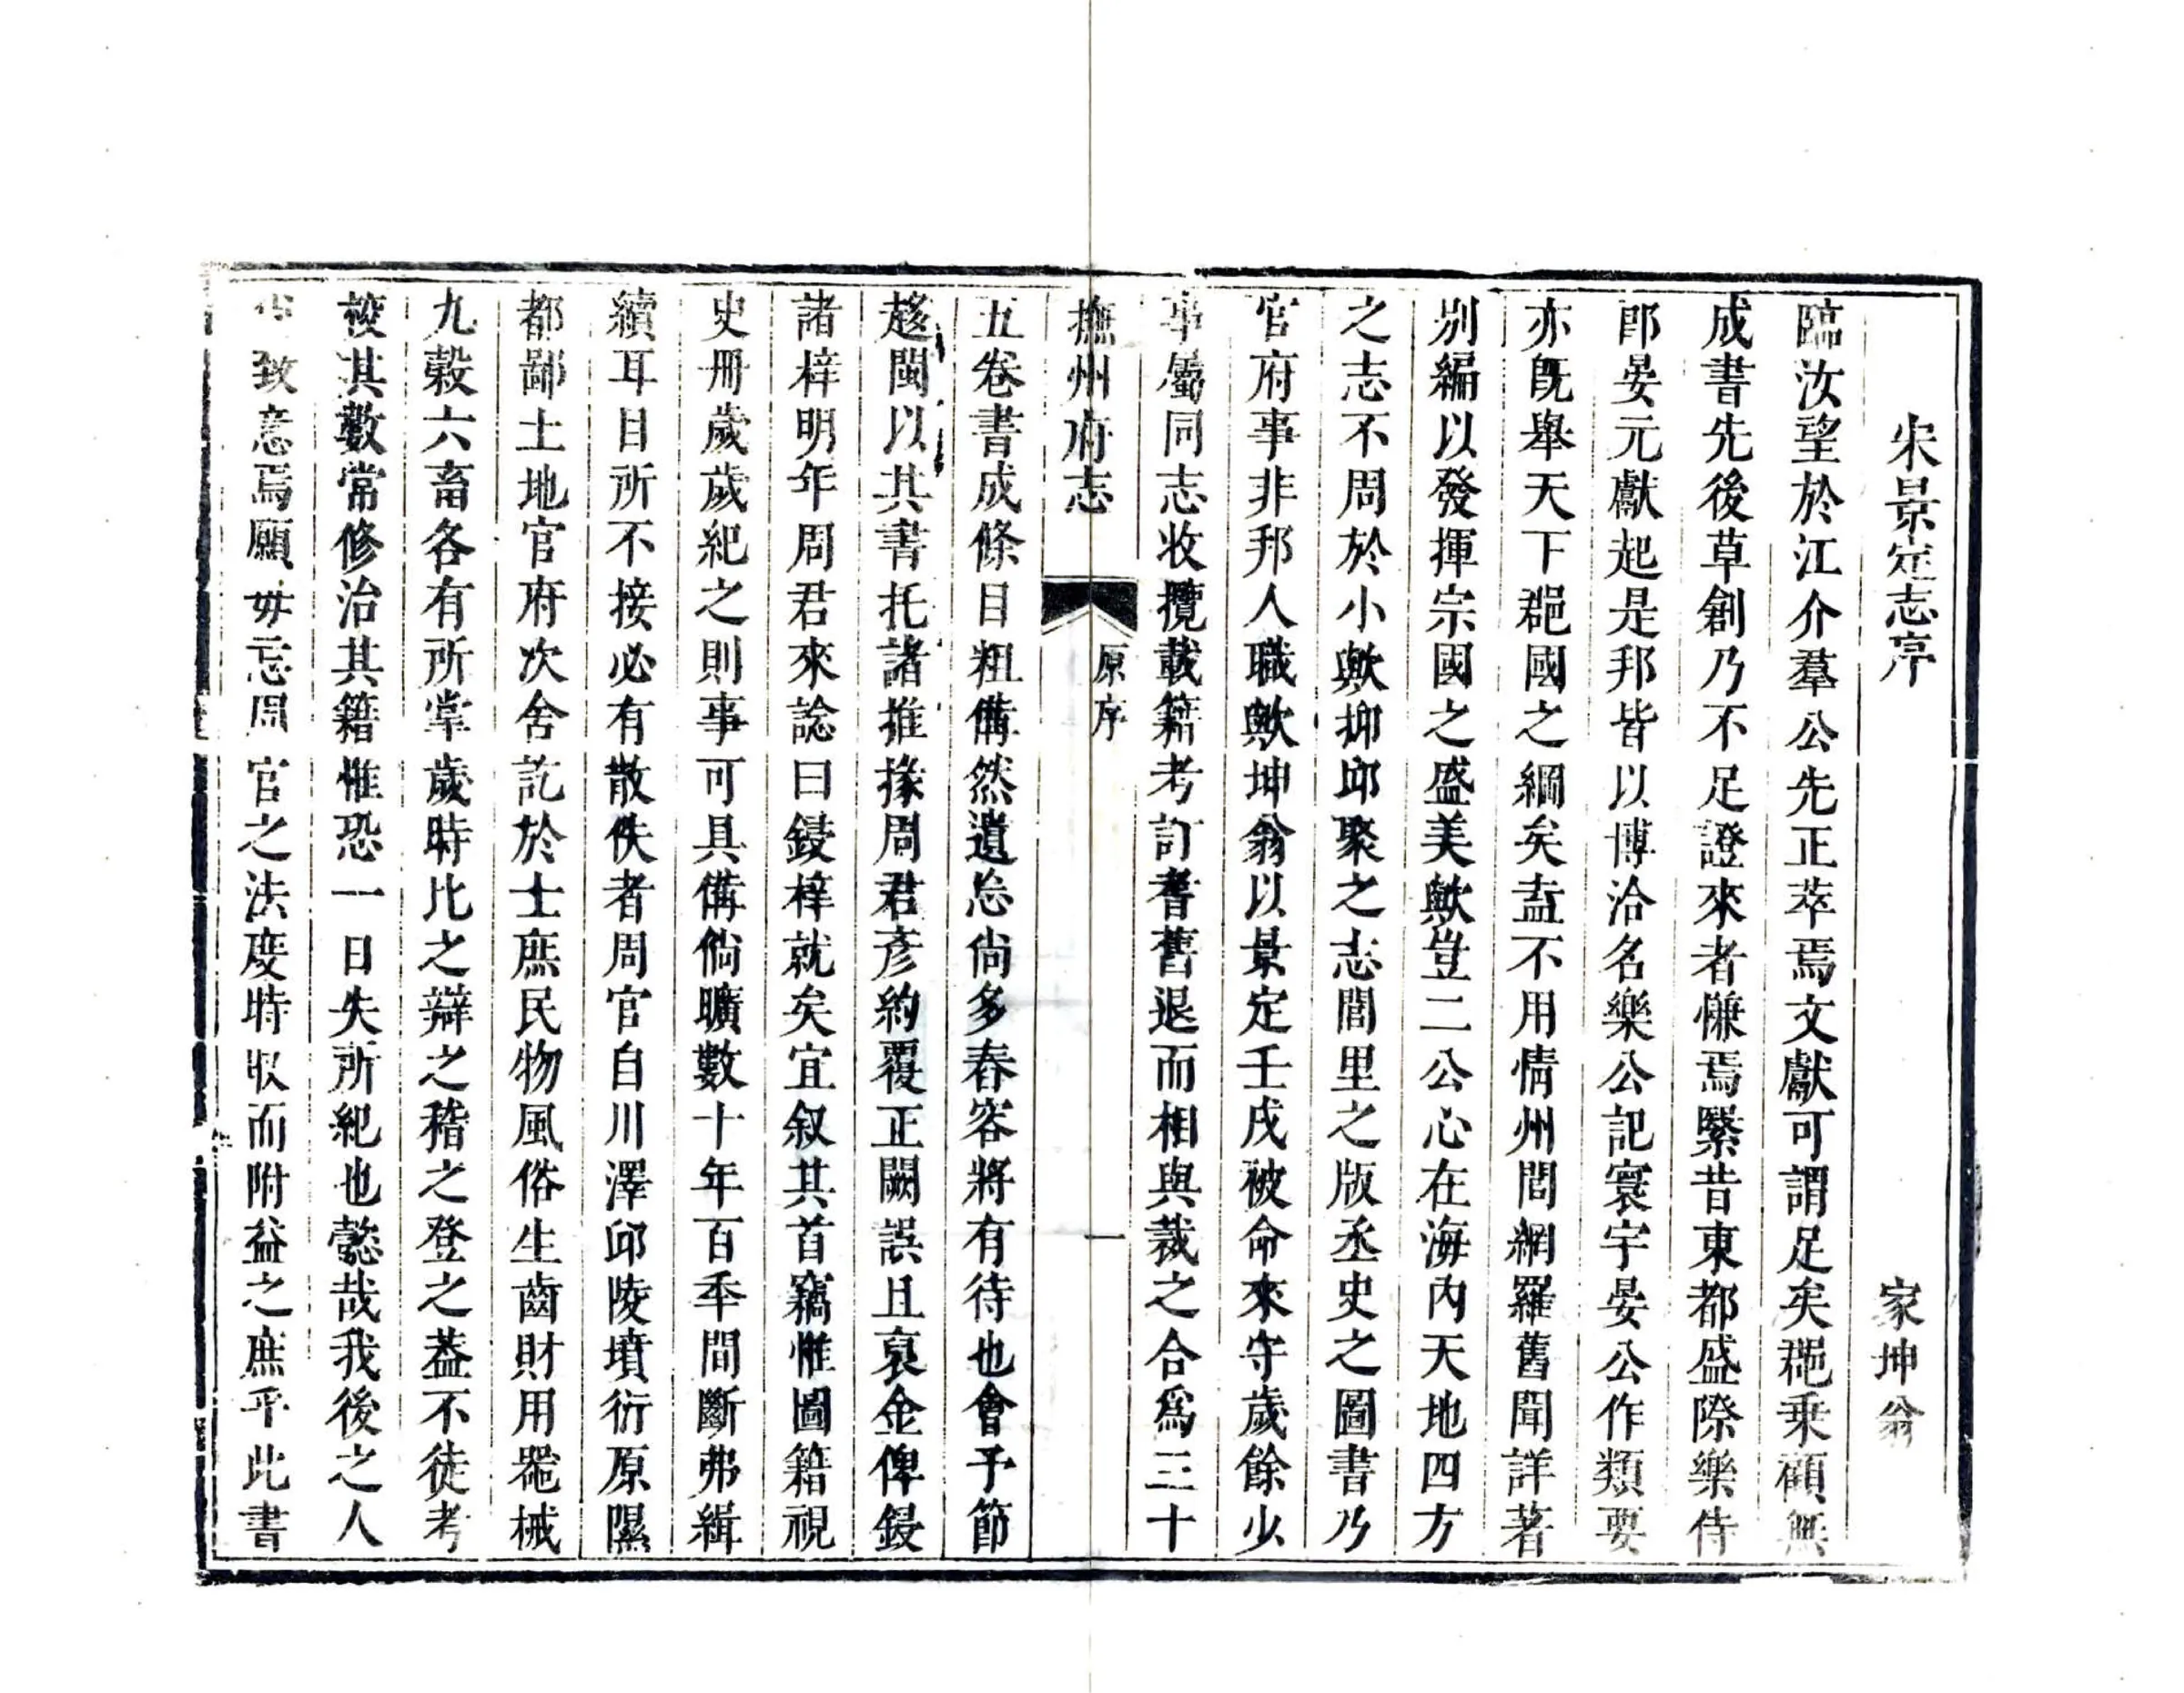 宋景定志序
家坤翁
臨汝望於江介羣公先正萃焉文獻可謂足矣郡乗顧無
成書先後草創乃不足證來者慊焉繄昔東都盛際樂侍
郎晏元獻起是邦皆以博洽名樂公記寰宇晏公作類要
亦旣舉天下郡國之綱矣盍不用情州閭網羅舊聞詳著
别編以發揮宗國之盛美歟豈二公心在海內天地四方
之志不周於小歟抑邱聚之志閭里之版丞史之圖書乃
官府事非邦人職歟坤翁以景定壬戌被命來守歲餘少
事屬同志收攬載籍考訂耆舊退而相與裁之合爲三十
撫州府志
原序
一
五卷書成條目粗備然遺忘尙多舂容將有待也會予節
趍閩以其書托諸推掾周君彥約覆正闕誤且裒金俾鋟
諸梓明年周君來諗曰鋟梓就矣宜叙其首竊惟圖籍視
史冊歲歲紀之則事可具備倘曠數十年百年間斷弗緝
續耳目所不接必有散佚者周官自川澤邱陵墳衍原隰
都鄙土地官府次舍訖於士庶民物風俗生齒財用噐械
九穀六畜各有所掌歲時比之辯之稽之登之葢不徒考
校其數常修治其籍惟恐一日失所紀也懿哉我後之人
致意焉願毋忘周官之法度時収而附益之庶乎此書